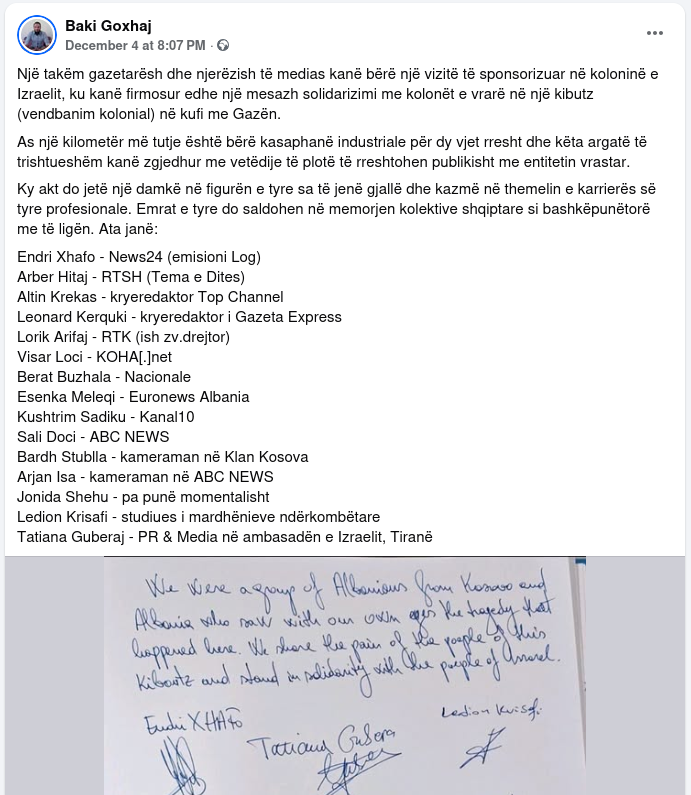 Baki Goxhaj
December 4 at 8:07 PM ·
Një takëm gazetarësh dhe njerëzish të medias kanë bërë një vizitë të sponsorizuar në koloninë e
Izraelit, ku kanë firmosur edhe një mesazh solidarizimi me kolonët e vrarë në një kibutz
(vendbanim kolonial) në kufi me Gazën.
As një kilometër më tutje është bërë kasaphanë industriale për dy vjet rresht dhe këta argatë të
trishtueshëm kanë zgjedhur me vetëdije të plotë të rreshtohen publikisht me entitetin vrastar.
Ky akt do jetë një damkë në figurën e tyre sa të jenë gjallë dhe kazmë në themelin e karrierës së
tyre profesionale. Emrat e tyre do saldohen në memorjen kolektive shqiptare si bashkëpunëtorë
me të ligën. Ata janë:
Endri Xhafo - News24 (emisioni Log)
Arber Hitaj - RTSH (Tema e Dites)
Altin Krekas - kryeredaktor Top Channel
Leonard Kerquki - kryeredaktor i Gazeta Express
Lorik Arifaj - RTK (ish zv.drejtor)
Visar Loci - KOHA[.]net
Berat Buzhala - Nacionale
Esenka Meleqi - Euronews Albania
Kushtrim Sadiku - Kanal10
Sali Doci - ABC NEWS
Bardh Stublla - kameraman në Klan Kosova
Arjan Isa - kameraman në ABC NEWS
Jonida Shehu - pa punë momentalisht
Ledion Krisafi - studiues i mardhënieve ndërkombëtare
Tatiana Guberaj - PR & Media në ambasadën e Izraelit, Tiranë
We were a group of Albanians from Kosovo and
Albania who saw with our own eyes the tragedy that
happened here. We share the pain of the people of this
Kibootz and stand in solidarity with the people of
Ledion Krisafi
Endri XHAFO
Tatiana Gubera